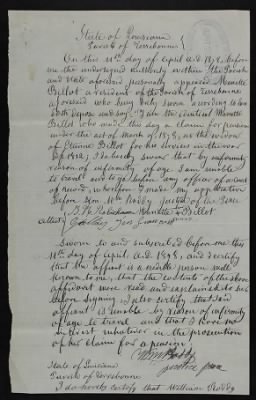 State of Louisiana
Parish of Terrebonne
On this 11th day of April A.D. 1878, before
me the undersigned authority within the Parish
and State aforesaid personally appeared Manette
Billot, a resident of the Parish of Terrebonne
aforesaid who being duly sworn according to law
doth depose and say, I am the identical Manette
Billot who made this day a claim for pension
under the act of March 9th 1878, as the widow
of Etienne Billot for his services in the war
of 1812, I do hereby swear that by infirmity
reason of infirmity of age I am unable
to travel and to go before any officer of a court
of record, wherefore I made my application
before Wm. Roddy Justice of the Peace
Manette Billot
attest
Sworn to and subscribed before me this
11th day of April A.D. 1878, and I certify
that the affiant is a credible person, well
known to me, that the contents of the above
affidavit were read and explained to her
before signing, I also certify that said
affiant is unable by reason of infirmity
of age to travel and that I have no
interest whatever in the prosecution
of her claim for a pension.
Wm Roddy
Justice Peace
State of Louisiana
Parish of Terrebonne
I do hereby certify that William Roddy